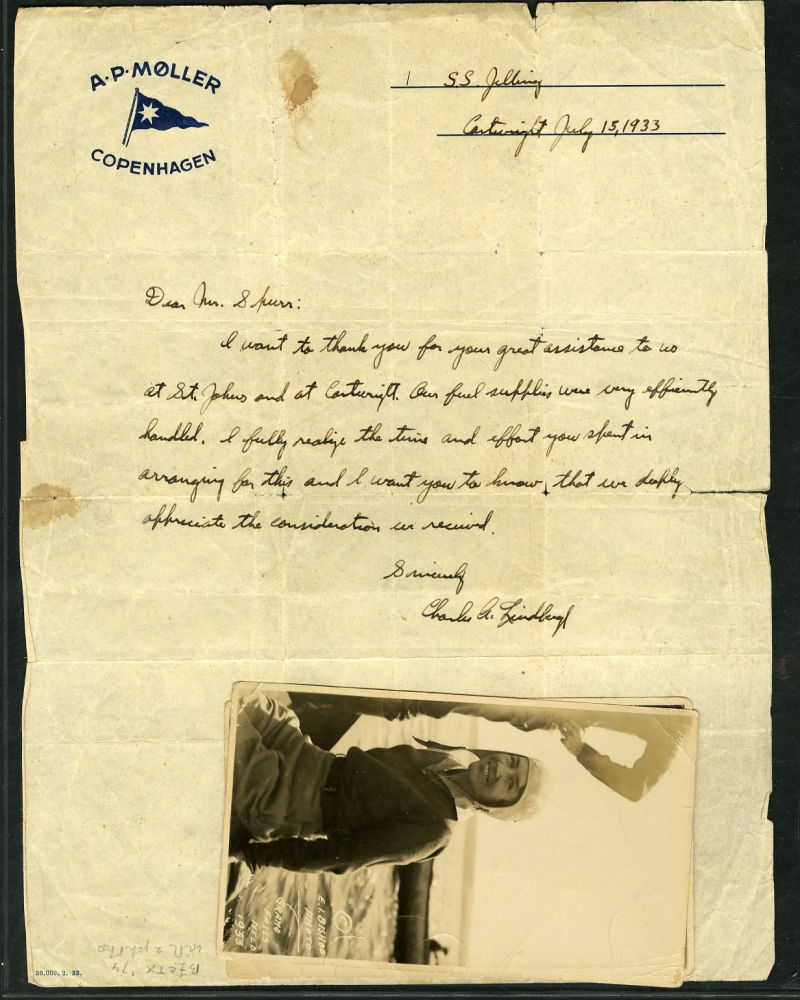 A·P·MØLLER
COPENHAGEN
S.S. Jelling
Cartwright July 15, 1933
Dear Mr. Spurr:
I want to thank you for your great assistance to us
at St. Johns and at Cartwright. Our fuel supplies were very efficiently
handled. I fully realize the time and effort you spent in
arranging for this and I want you to know, that we deeply
appreciate the consideration we received.
Sincerely
Charles A. Lindbergh
©
E.I. BISHOP
PHOTO
GRAND
FALLS
NFLD
1933
with 2 photos
'74
30.000. 2. 33.